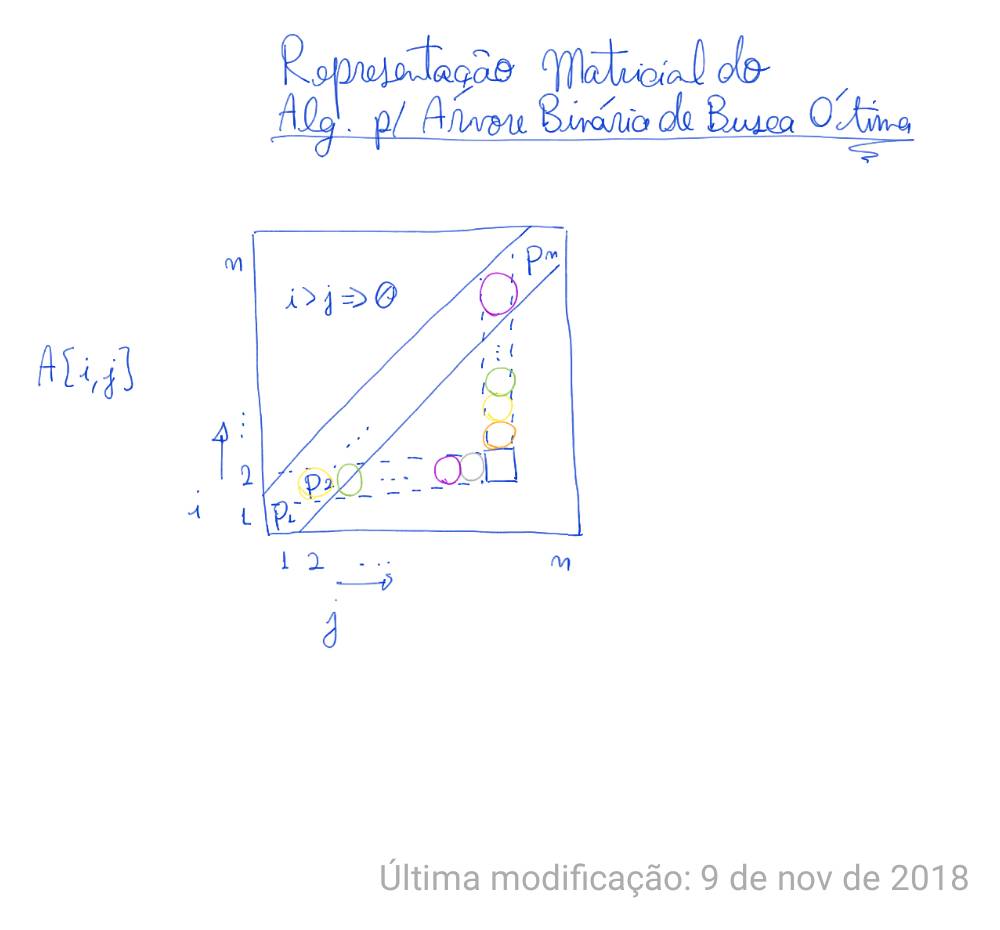 Representação Matricial do
Alg. p/ Árvore Binária de Busca Ótima
n
pn
i>j => 0
A[i,j]
⋮
2 p2 ...
i 1 p1
1 2 ... n
j
Última modificação: 9 de nov de 2018